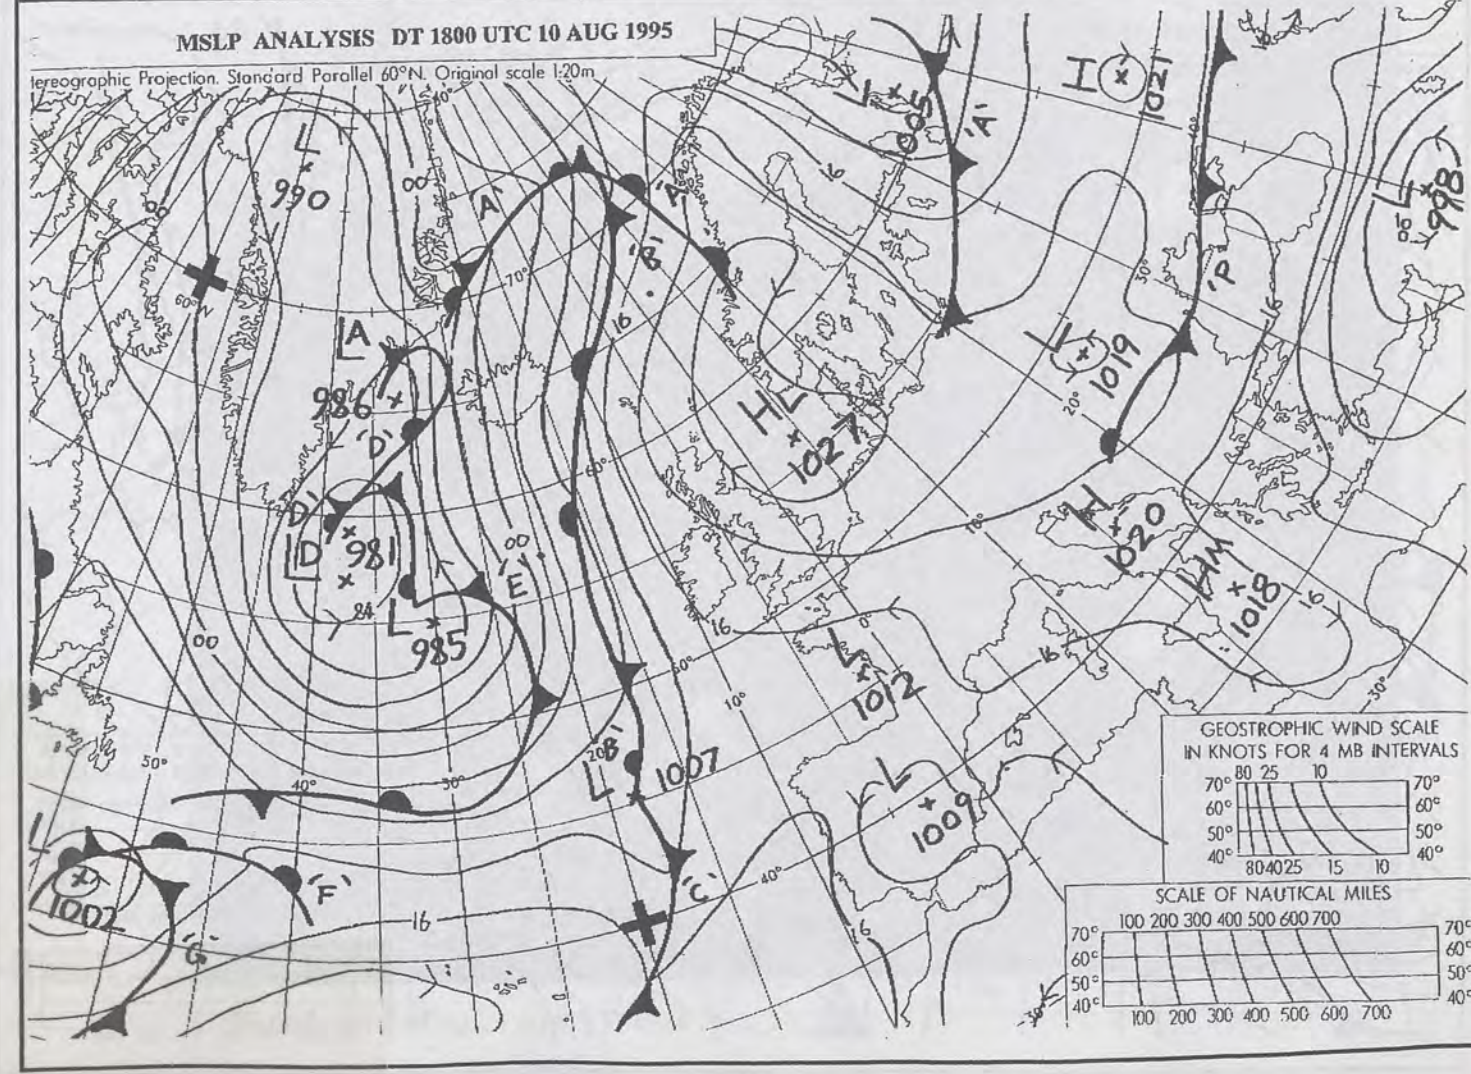 MSLP ANALYSIS DT 1800 UTC 10 AUG 1995
tereographic Projection. Standard Parallel 60°N. Original scale 1:20m
L
990
00
00
60°N
'A'
70°
'A'
'B'
16
L
1005
'A'
16
H
1021
40°
L
998
30°
'P'
16
LA
986
'D'
L
1019
20°
H
L
1027
60°
D'
LD
981
84
00
'E'
L
985
00
10°
H
1020
HM
1018
16
16
0°
L
1012
16
50°
10°
30°
50°
40°
30°
20°
'B'
L
1007
L
1009
40°
'C'
16
L
1002
'F'
'G'
16
GEOSTROPHIC WIND SCALE
IN KNOTS FOR 4 MB INTERVALS
80 25 10
70° 70°
60° 60°
50° 50°
40° 40°
80 40 25 15 10
SCALE OF NAUTICAL MILES
100 200 300 400 500 600 700
70° 70°
60° 60°
50° 50°
40° 40°
100 200 300 400 500 600 700